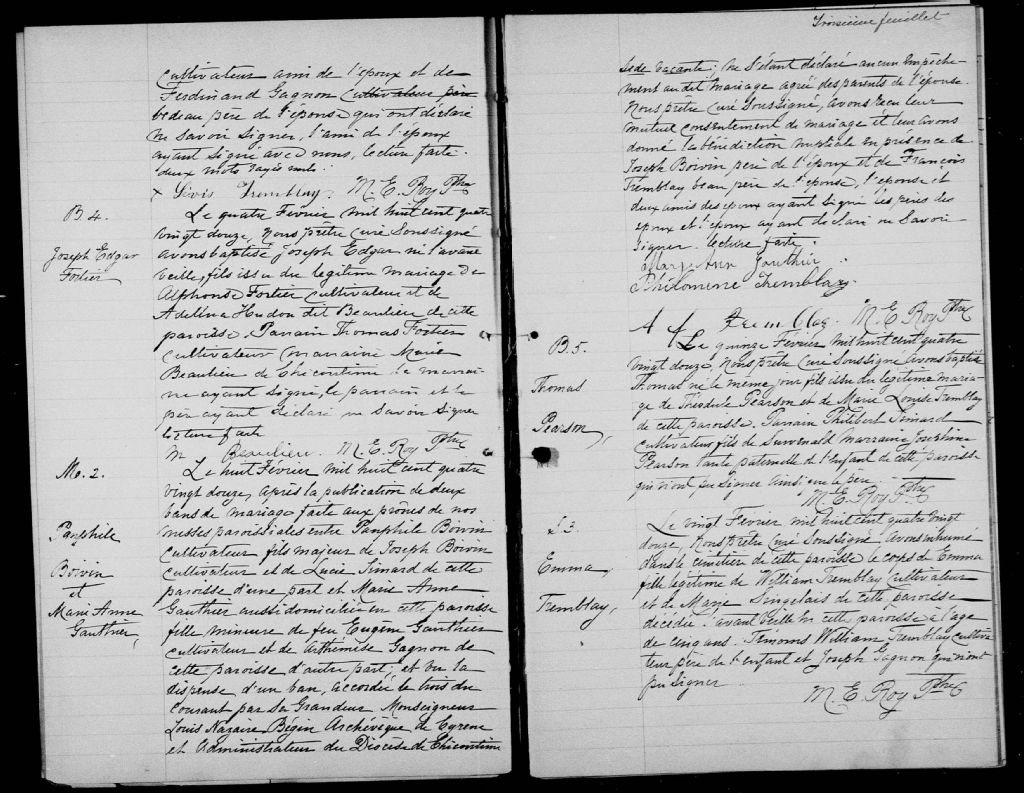 cultivateur ami de l'époux et de
Ferdinand Gagnon cultivateur père
bedeau père de l'épouse qui ont déclaré
ne savoir signer, l'ami de l'époux
ayant signé avec nous, lecture faite.
deux mots rayés nuls.
x Lévis Tremblay. M. E. Roy Ptre
B 4.
Joseph Edgar
Fortier
Le quatre Février mil huit cent quatre
vingt douze, Nous prêtre curé soussigné
avons baptisé Joseph Edgar né l'avant
veille, fils issu du légitime mariage de
Alphonse Fortier cultivateur et de
Adelina Hudon dit Beaulieu de cette
paroisse. Parrain Thomas Fortier
cultivateur marraine Marie
Beaulieu de Chicoutimi la marrai-
ne ayant signé, le parrain et le
père ayant déclaré ne savoir signer
lecture faite
Beaulieu. M. E. Roy Ptre
M. 2.
Pamphile
Boivin
et
Marie Anne
Gauthier,
Le huit Février mil huit cent quatre
vingt douze, après la publication de deux
bans de mariage faite aux prônes de nos
messes paroissiales entre Pamphile Boivin
cultivateur fils majeur de Joseph Boivin
cultivateur et de Lucie Simard de cette
paroisse d'une part et Marie Anne
Gauthier aussi domiciliée en cette paroisse
fille mineure de feu Eugène Gauthier
cultivateur et de Arthémise Gagnon de
cette paroisse d'autre part; et vu la
dispense d'un ban, accordée le trois du
courant par Sa Grandeur Monseigneur
Louis Nazaire Bégin Archévêque de Cyrène
et Administrateur du Diocèse de Chicoutimi
Troisième feuillet
Sede vacante; ne s'étant déclaré aucun empêche-
ment au dit mariage agréé des parents de l'épouse.
Nous prêtre curé soussigné, avons reçu leur
mutuel consentement de mariage et leur avons
donné la bénédiction nuptiale en présence de
Joseph Boivin père de l'époux et de François
Tremblay beau père de l'épouse, l'épouse et
deux amis des époux ayant signé les pères des
époux et l'époux ayant déclaré ne savoir
signer. lecture faite.
Mary Ann Gauthier.
Philomène Tremblay.
Tremblay. M. E. Roy Ptre
B. 5.
Thomas
Pearson,
Le quinze Février mil huit cent quatre
vingt douze, Nous prêtre curé soussigné avons baptisé
Thomas né le même jour fils issu du légitime maria-
ge de Théodule Pearson et de Marie Louise Tremblay
de cette paroisse. Parrain Philibert Simard
cultivateur fils de marraine Joséphine
Pearson tante paternelle de l'enfant de cette paroisse
qui n'ont pu signer ainsi que le père
M. E. Roy Ptre
S 3.
Emma,
Tremblay,
Le vingt Février mil huit cent quatre vingt
douze, Nous prêtre curé soussigné avons inhumé
dans le cimetière de cette paroisse le corps de Emma
fille légitime de William Tremblay cultivateur
et de Marie Singelais de cette paroisse
décédée l'avant veille en cette paroisse à l'age
de cinq ans. Témoins William Tremblay cultiva-
teur père de l'enfant et Joseph Gagnon qui n'ont
pu signer
M. E. Roy Ptre